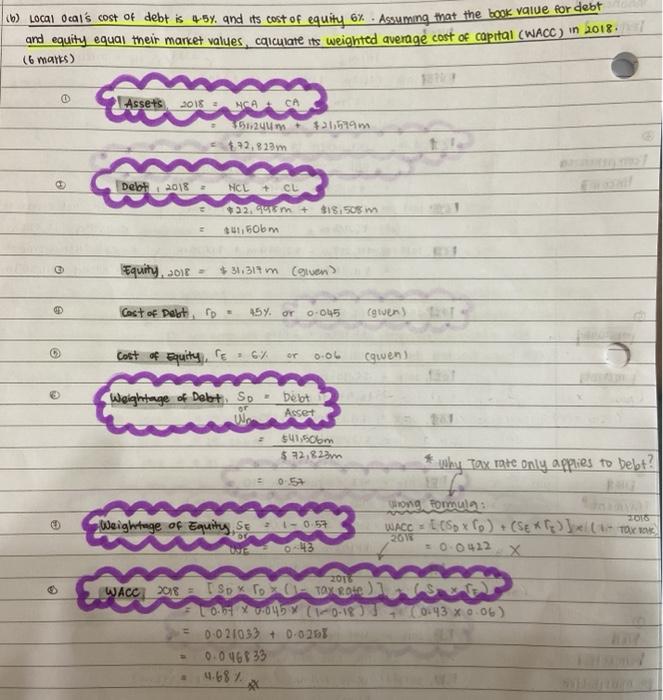 (b) Local Ocal's cost of debt is 4.5% and its cost of equity 6%. Assuming that the book value for debt
and equity equal their market values, calculate its weighted average cost of capital (WACC) in 2018.
(6 marks)
① Assets, 2018 = NCA + CA
= $51,244m + $21,579m
= $72,823m
② Debt, 2018 = NCL + CL
= $22,998m + $18,508m
= $41,506m
③ Equity, 2018 = $31,317m (given)
④ Cost of Debt, rD = 4.5% or 0.045 (given)
⑤ Cost of Equity, rE = 6% or 0.06 (given)
⑥ Weightage of Debt, SD = Debt
or Asset
WD
= $41,506m
$72,823m
* Why Tax rate only applies to Debt?
= 0.57
Wrong Formula:
⑦ Weightage of Equity, SE = 1 - 0.57
WACC 2018 = [(SD x rD) + (SE x rE)] x (1 - Tax rate 2018)
or WE = 0.43
= 0.0422 X
⑧ WACC 2018 = [SD x rD x (1 - Tax Rate 2018)] + (SE x rE)
= [0.57 x 0.045 x (1-0.18)] + (0.43 x 0.06)
= 0.021033 + 0.0258
= 0.046833
= 4.68%